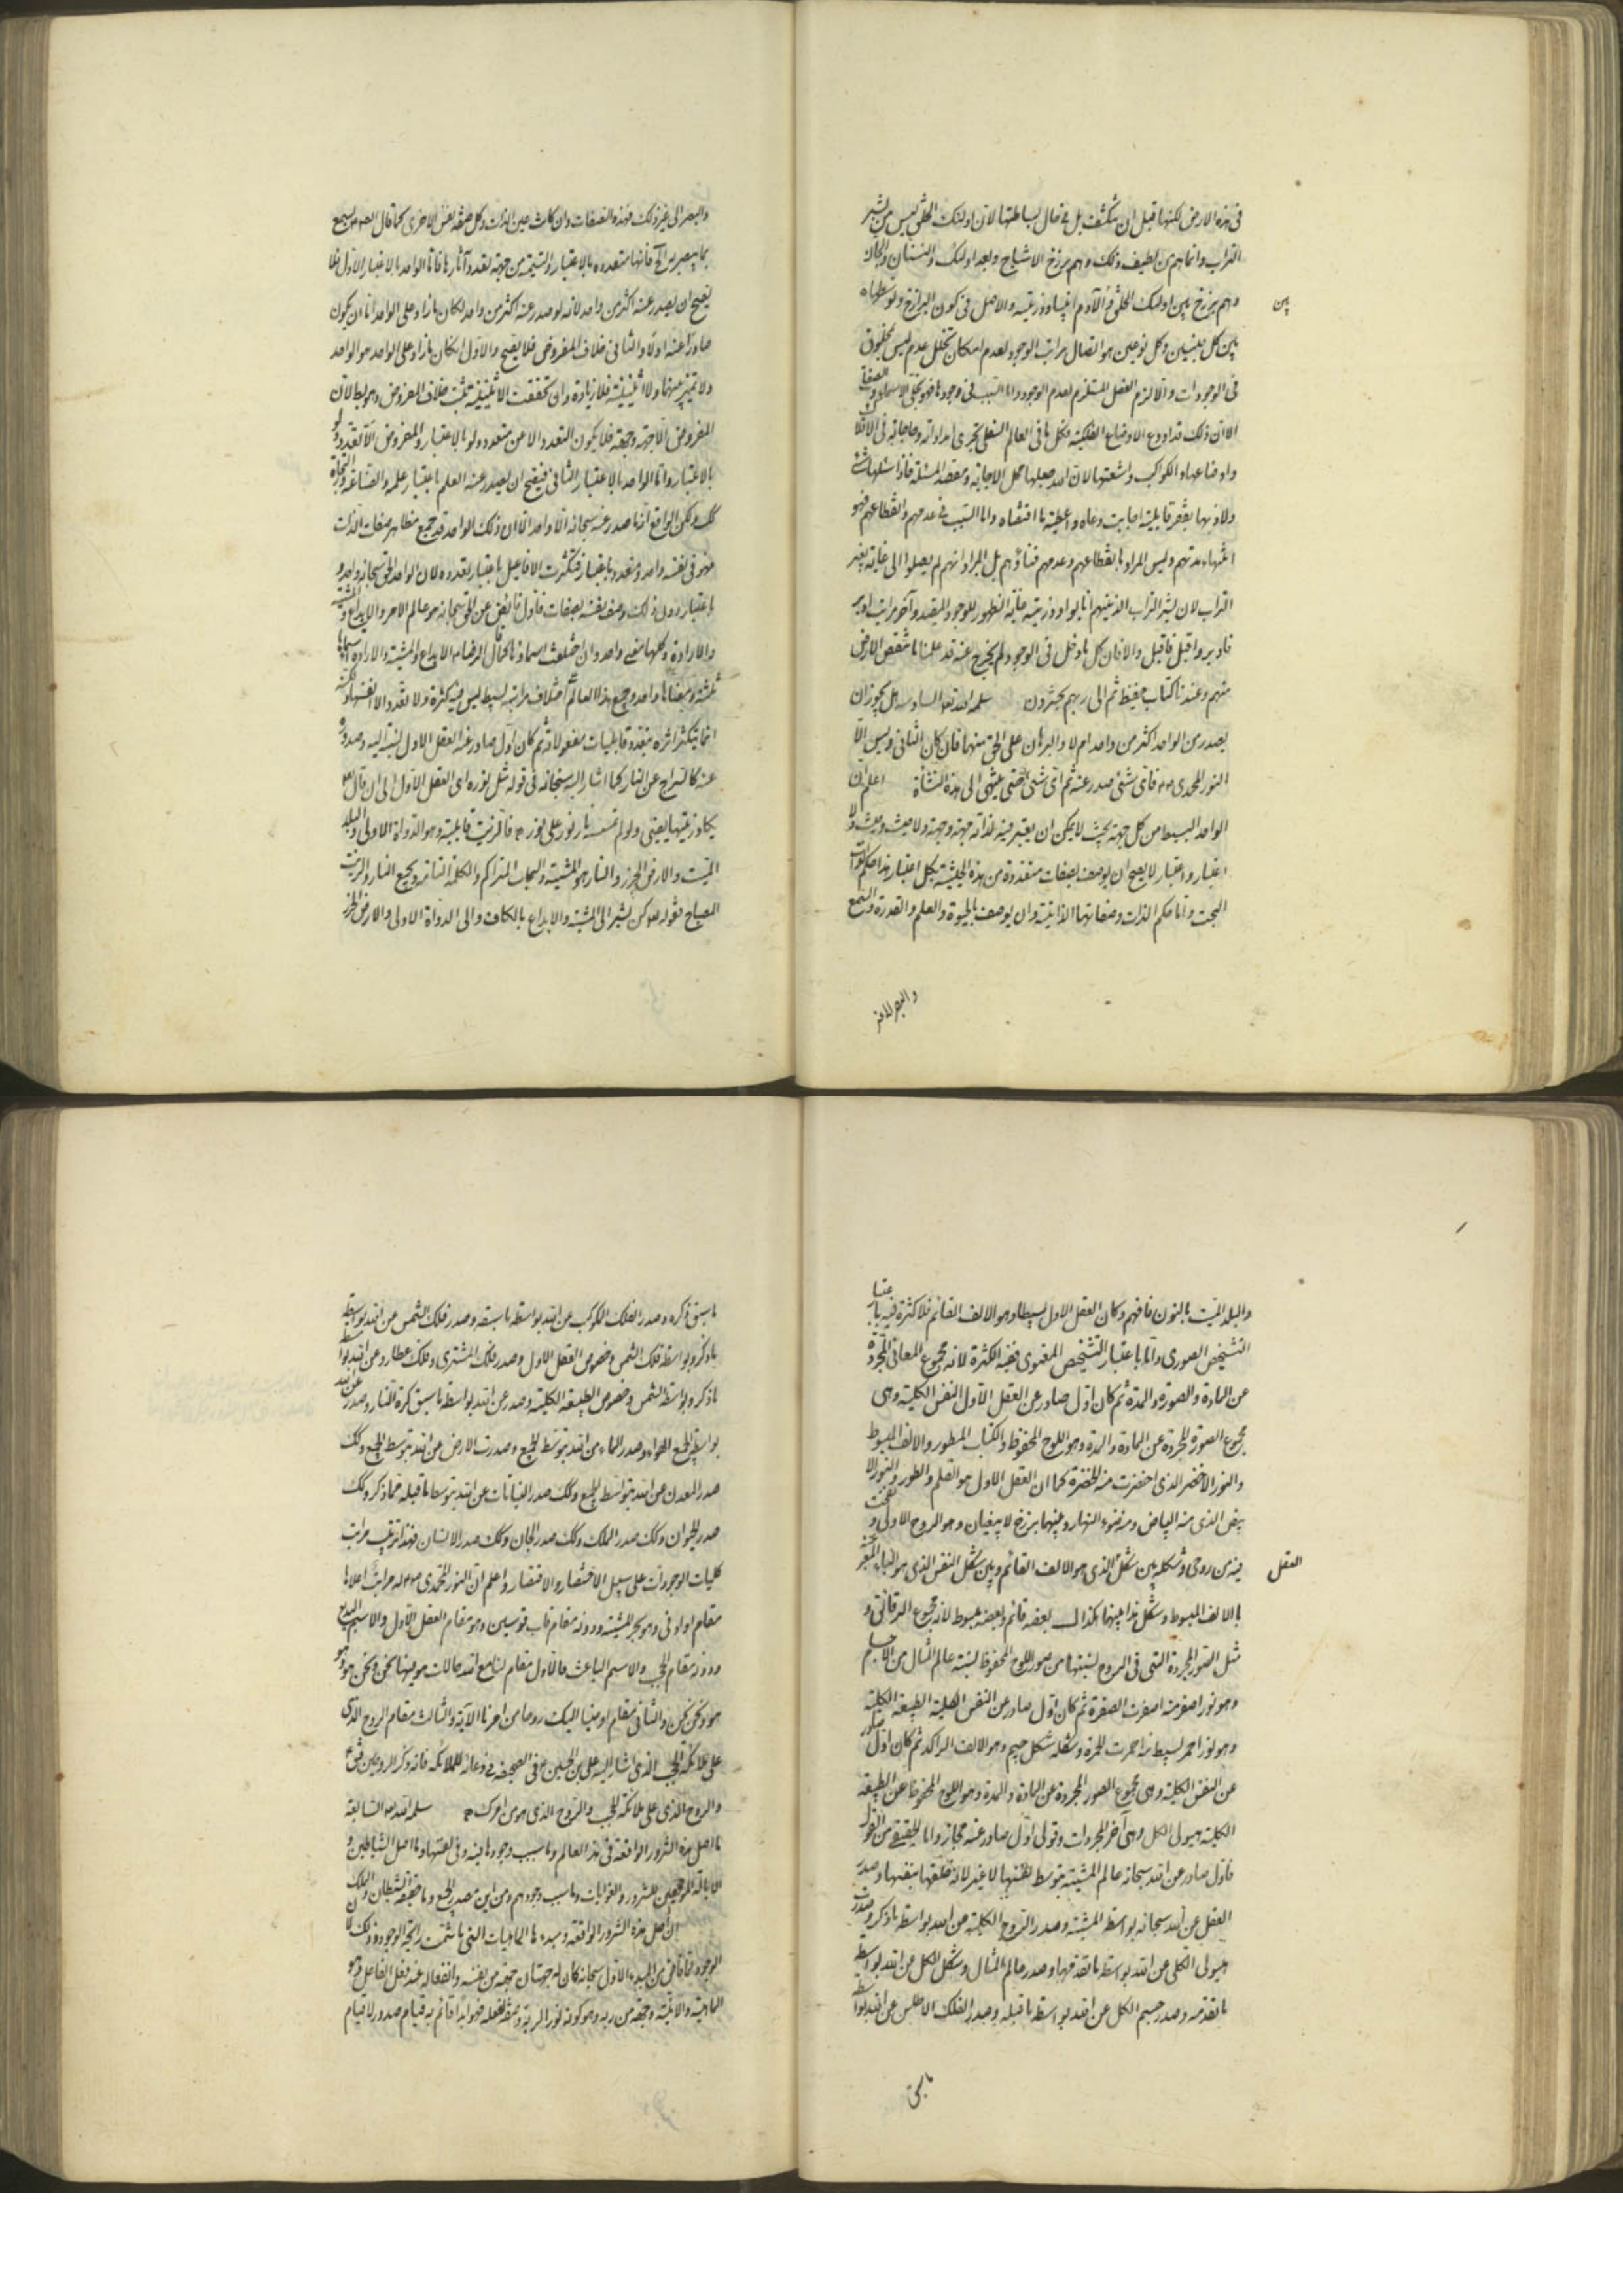 فی هذه الارض لکنها قبل ان تکثفت بل فی حال بساطتها لان اولئک الخلق لیس من بشر
التراب وانما هم من لطیف ذلک وهم برزخ الاشباح وبعد اولئک والنسناس والجان
وهم برزخ بین اولئک الخلق و آدم ابینا وذریته والاصل فی کون البرازخ
بین
بین کل جنسین وکل نوعین هو اتصال مراتب الوجود لعدم امکان تخلل عدم لیس بمخلوق
فی الوجودات والا لزم الفصل المستلزم لعدم الوجود واما السبب فی وجودها فهو تجلی الاسماء والصفات
الا ان ذلک قد اودع الاوضاع الفلکیة فکل ما فی العالم السفلی تجری امداداته وحاجاته فی الافلاک
واوضاعها والکواکب واشعتها لان الله جعلها محل الاجابة ومقصد المسئلة فاذا سئلها شیء
ولاذ بها بفقر قابلیته اجابت دعاه واعطته ما اقتضاه واما السبب فی عدمهم وانقطاعهم فهو
انتهاء مدتهم ولیس المراد بانقطاعهم وعدمهم فناؤهم بل المراد انهم لم یصلوا الی غایة بغیر
التراب لان بشر التراب الذین هم انا بوا وذریته غایة الظهور للوجود المقید وآخر مراتب ادبر
فادبر واقبل فاقبل والا فان کل ما دخل فی الوجود لم یخرج عنه قد علمنا ما تنقص الارض
منهم وعندنا کتاب حفیظ ثم الی ربهم یحشرون سلمه الله تعالی السادسة هل یجوز ان
یصدر من الواحد اکثر من واحد ام لا والبرهان علی الحق منهما فان کان الثانی ولیس الا
النور المحمدی ص فای شیء صدر عنه ثم ای شیء حتی ینتهی الی هذه النشأة اعلم ان
الواحد البسیط من کل جهة بحیث لا یمکن ان یعتبر فیه لذاته جهة وجهة ولا حیث وحیث ولا
اعتبار واعتبار لا یصح ان یوصف بصفات متعددة من هذه الحیثیة بکل اعتبار هذا حکم الذات
البحت واما حکم الذات وصفاتها الذاتیة وان یوصف بالحیوة والعلم والقدرة والسمع
والبصر الی غیر
والبصر الی غیر ذلک فهذه الصفات وان کانت عین الذات وکل صفة بعین الاخری کما قال الص ع یسمع
بما یبصر الخ فانها متعدده بالاعتبار والتسمیة من جهة تعدد آثارها فاما الواحد بالاعتبار الاول فلا
یصح ان یصدر عنه اکثر من واحد لانه لو صدر عنه اکثر من واحد لکان ما زاد علی الواحد اما ان یکون
صادرا عنه اولا والثانی خلاف المفروض فلا یصح والاول ان کان ما زاد علی الواحد هو الواحد
ولا تمیز بینهما ولا اثنینیة فلا زیادة وان تحققت الاثنینیة ثبت خلاف المفروض وهو بط لان
المفروض الا جهة وجهة فلا یکون التعدد الا من متعدد ولو بالاعتبار والمفروض الا تعدد ولو
بالاعتبار واما الواحد بالاعتبار الثانی فیصح ان یصدر عنه العلم باعتبار علمه والصناعة والتجارة
کک ولکن الواقع انه ما صدر عنه سبحانه الا واحد الا ان ذلک الواحد قد جمع مظاهر صفات الذات
فهو فی نفسه واحد ومتعدد باعتبار فتکثرت الافاعیل باعتبار تعدده لان الواحد الحق سبحانه واحد و
باعتبار دون ذلک وصف نفسه بصفات فاول فایض عن الحق سبحانه هو عالم الامر والابداع والمشیة
والارادة وکلها معنی واحد وان اختلفت اسماؤه کما قال الرضا ع الابداع والمشیة والارادة اسماؤها
ثلثة ومعناها واحد وجمیع هذا العالم اختلاف مراتبه بسیط لیس فیه کثرة ولا تعدد الا نفسها ولکنه
انما تکثر اثره بتعدد قابلیات مفعولاته ثم کان اول صادر عنه العقل الاول نسبته الیه وصدوره
عنه کالسراج عن النار کما اشار الیه سبحانه فی قوله مثل نوره ای العقل الاول الی ان قال تعالی
یکاد زیتها یضئ ولو لم تمسسه نار نور علی نور فالزیت قابلیته وهو الدواة الاولی والبلد
المیت والارض الجرز والنار هو المشیة والسحاب المتراکم والکلمة التامة ویجمع النار والزیت
المصباح فقوله تعالی کن یشیر الی المشیة والابداع بالکاف والی الدواة الاولی والارض الجرز
والبلد المیت بالنون فافهم وکان العقل الاول بسیطا وهو الالف القائم فلا کثرة فیه باعتبار
التشخص الصوری واما باعتبار التشخص المعنوی ففیه الکثرة لانه مجموع المعانی المجردة
عن المادة والصورة والمدة ثم کان اول صادر عن العقل الاول النفس الکلیة وهی
مجموع الصورة المجردة عن المادة والمدة وهو اللوح المحفوظ والکتاب المسطور والالف المبسوط
والنور الاخضر الذی اخضرت منه الخضرة کما ان العقل الاول هو القلم والطور والنور الا
بیض الذی منه البیاض ومنه ضوء النهار وبینهما برزخ لا یبغیان وهو الروح الاولی و نفخت
فیه من روحی وشکله بین شکل الذی هو الالف القائم وبین شکل النفس الذی هو
العقل
بالالف المبسوط وشکل هذا بینهما هکذا لـ بعضه قائم وبعضه مبسوط لانه مجموع الرقائق و
مثل الصور المجردة التی فی الروح نسبتها من صور اللوح المحفوظ نسبة عالم المثال من الاجسام
وهو نور اصفر منه اصفرت الصفرة ثم کان اول صادر عن النفس الکلیة الطبیعة الکلیة
وهو نور احمر بسیط منه احمرت الحمرة وشکله شکل جیم وهو الالف الراکد ثم کان اول صادر
عن النفس الکلیة وهی مجموع الصور المجردة عن المادة والمدة وهو اللوح المحفوظ عن الطبیعة
الکلیة هیولی الکل وهی آخر المجردات وقولی اول صادر عنه مجاز واما الحقیقة من القول
فاول صادر عن الله سبحانه عالم المشیة بتوسط نفسها لا غیر لانه خلقها بنفسها وصدر
العقل عن الله سبحانه بواسطة المشیة وصدر الروح الکلیة من الله بواسطة ما ذکر وصدرت
هیولی الکلی عن الله بواسطة ما تقدمها وصدر عالم المثال وشکل الکل من الله بواسطة
ما تقدمه وصدر جسم الکل عن الله بواسطة ما قبله وصدر الفلک الاطلس عن الله بواسطة
ما سبق
ما سبق ذکره وصدر الفلک المکوکب عن الله بواسطة ما سبقه وصدر فلک الشمس عن الله بواسطة
ما ذکر وبواسطة فلک الشمس وخصوص العقل الاول وصدر فلک المشتری وفلک عطارد عن الله بواسطة
ما ذکر وبواسطة الشمس وخصوص الطبیعة الکلیة وصدر عن الله بواسطة ما سبق کرة النار وصدر عن الله
بواسطة الجمیع الهواء وصدر الماء من الله بتوسط الجمیع وصدرت الارض من الله بتوسط الجمیع وکک
صدر المعدن عن الله بتوسط الجمیع وکک صدر النباتات عن الله بتوسط ما قبله مما ذکر وکک
صدر الحیوان وکک صدر الملک وکک صدر الجان وکک صدر الانسان فهذا ترتیب مراتب
کلیات الوجودات علی سبیل الاختصار والاقتصار واعلم ان النور المحمدی ص له مراتب اعلاها
مقام او ادنی وهو بحر المشیة ودونه مقام قاب قوسین وهو مقام العقل الاول والاسم البدیع
ودونه مقام الحجب والاسم الباعث فالاول مقام لنا مع الله حالات هو فیها نحن ونحن هو وهو
هو ونحن نحن والثانی مقام اوحینا الیک روحا من امرنا الآیة والثالث مقام الروح الذی
علی ملائکة الحجب الذی اشار الیه علی بن الحسین ع فی الصحیفة فی دعائه للملائکة فانه ذکر الروحین فق ع
والروح الذی علی ملائکة الحجب والروح الذی هو من امرک سلمه الله السابعة
ما اصل هذه الشرور الواقعة فی هذا العالم وما سبب وجودها فیه وفی لعنتها وما اصل الشیاطین و
الابالسة الموقعین للشرور والغوایات وما سبب وجودهم ومن این یصدر الجمیع وما حقیقة الشیطان والملک
ان اصل هذه الشرور الواقعة ومبدءها الماهیات التی ما شمت رائحة الوجود وذلک لان
الوجود لما فاض من المبدء الاول سبحانه کان له جهتان جهة من نفسه وانفعاله عند فعل الفاعل وهو
الماهیة والانیة وجهة من ربه وهو کونه نور الربه وصفة لفعله فهو ابدا قائم به قیام صدور لا قیام